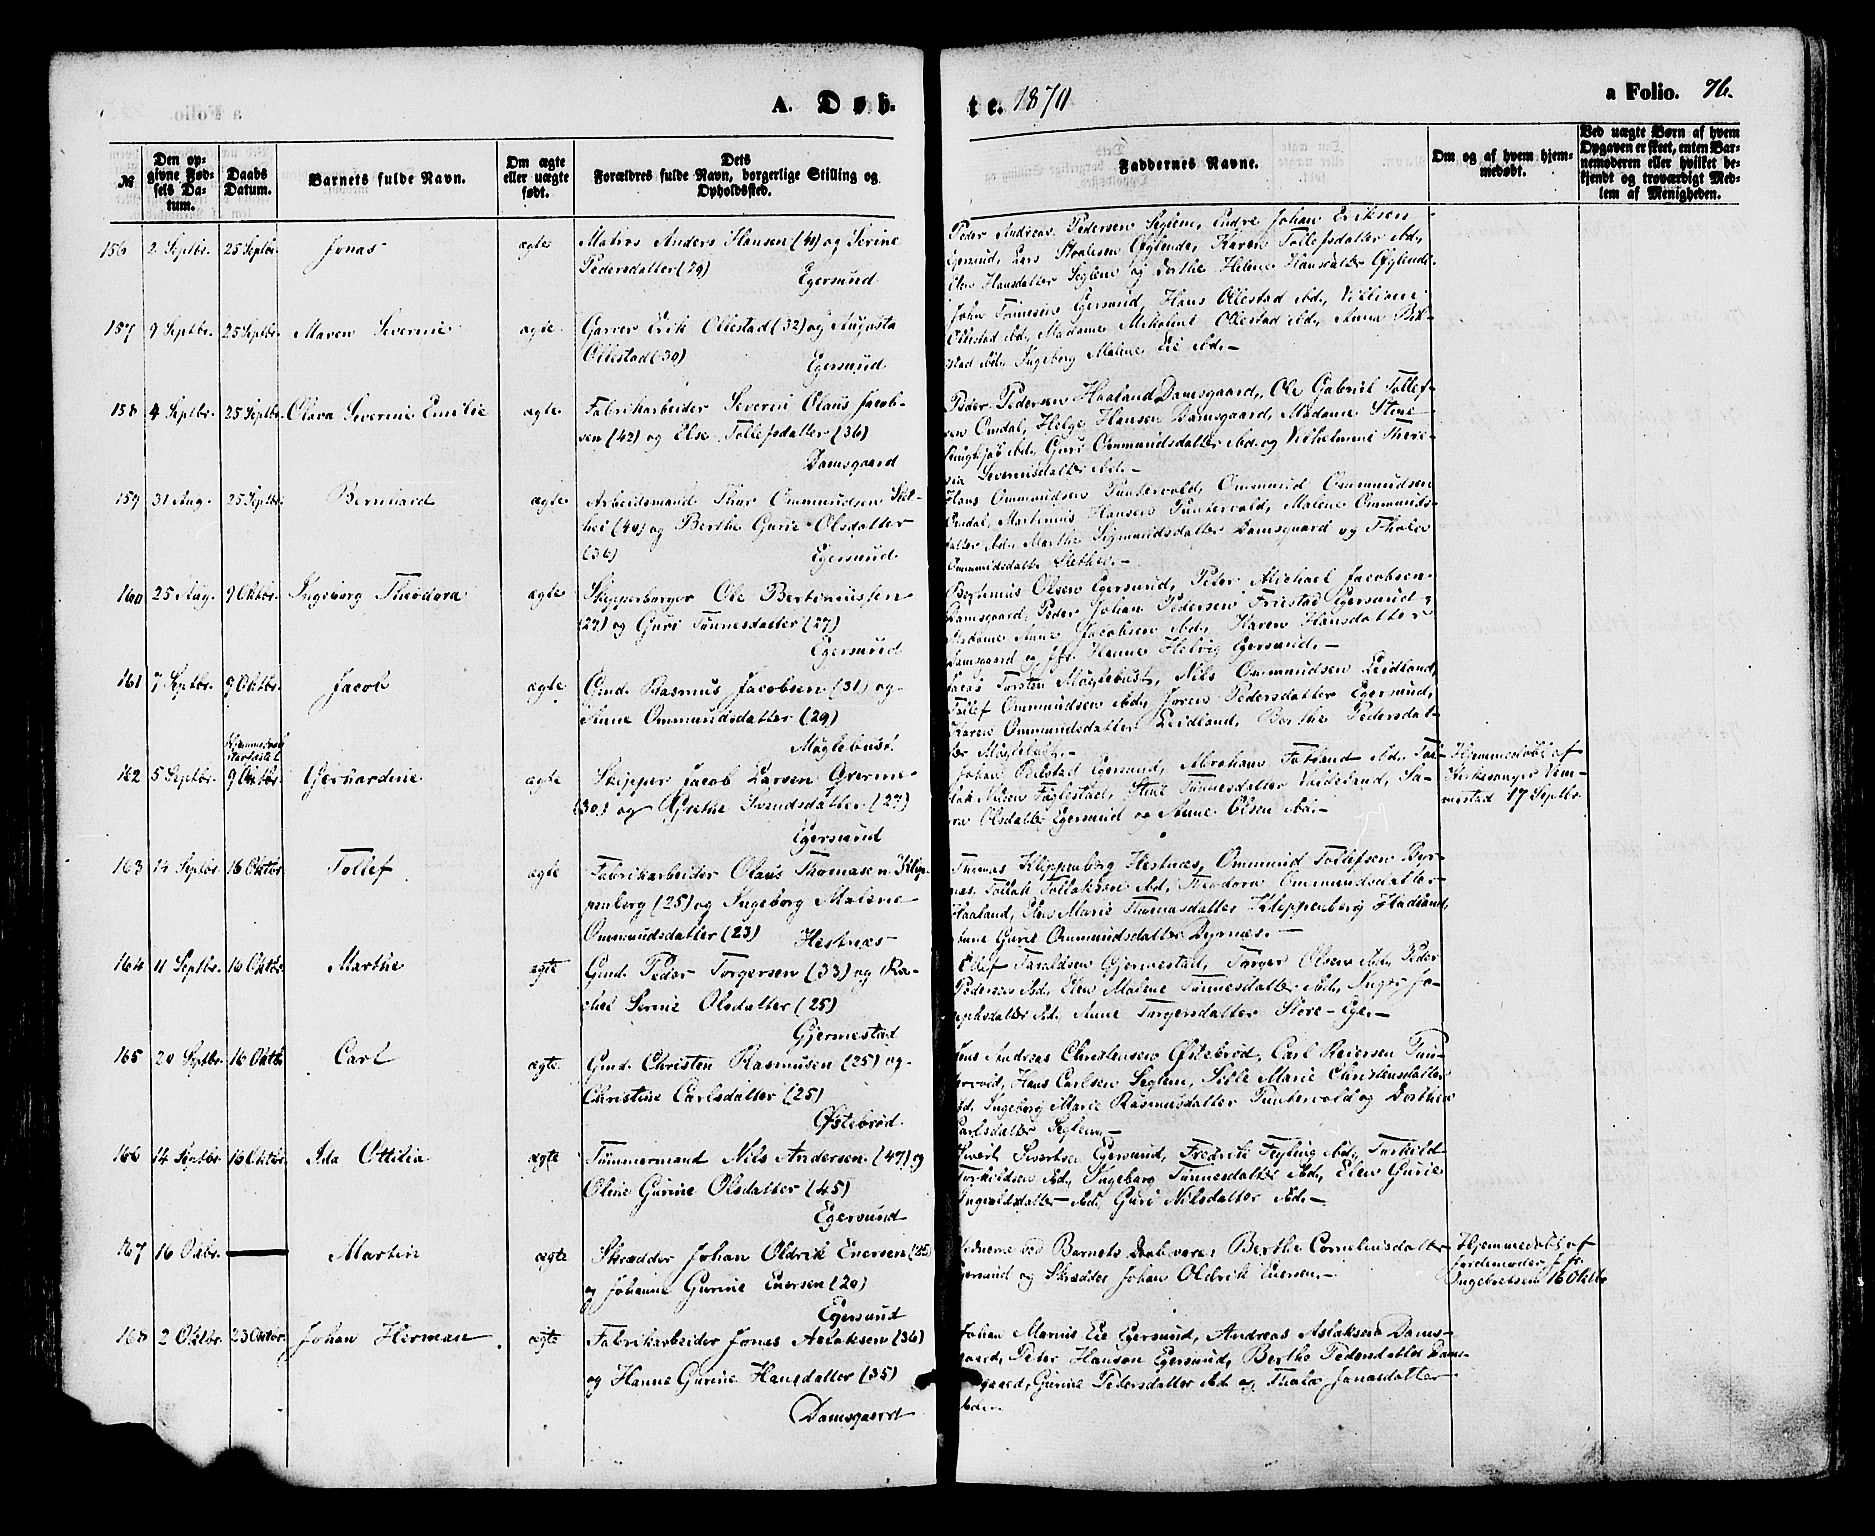 A. Døb- te. 1870 a Folio. 76.
№
Den opgivne Fødsels Datum.
Daabs Datum.
Barnets fulde Navn.
Om ægte eller uægte født.
Dets Forældres fulde Navn, borgerlige Stilling og Opholdssted.
Faddernes Navne.
Om og af hvem hjemmedøbt.
Ved uægte Børn af hvem Opgaven er skeet, enten Barnemoderen eller hvilket bekjendt og troværdigt Medlem af Menigheden.
156 2 Septbr. 25 Septbr. Jonas ægte
Matros Anders Hansen (41) og Serine
Pedersdatter (29)
Egersund
Peder Andreas Pedersen Seglem, Endre Johan Eriksen
Egersund, Lars Staalesen Øglende, Karen Tollefsdatter ibd.,
Elen Hansdatter Seglem og Berthe Helene Hansdatter Øglende
157 9 Septbr. 25 Septbr. Maren Severine ægte
Garver Erik Ollestad (32) og Augusta
Ollestad (30)
Egersund
Egersund, Hans Ollestad ibd.,
Ollestad ibd., Madame Mikaline Ollestad ibd., Anna
ibd., Ingeborg Malene Eie ibd.-
158 4 Septbr. 25 Septbr. Olava Severine Emilie ægte
Fabrikarbeider Severin Olaus Jacob-
sen (42) og Else Tollefsdatter (36)
Damsgaard
Peder Pedersen Haaland Damsgaard, Ole Gabriel Tollef-
sen Omdal, Helge Hansen Damsgaard, Madame Stine
ibd., Guri Ommundsdatter ibd. og Vilhelmine There-
sia Severinsdatter ibd.-
159 31 Aug. 25 Septbr. Bernhard ægte
Arbeidsmand Thor Ommundsen Slet-
hei (40) og Berthe Gurie Olsdatter
(36)
Egersund
Hans Ommundsen Puntervold, Ommund Ommundsen
Omdal, Martinius Hansen Puntervold, Malene Ommunds-
datter ibd., Marthe Sigmundsdatter Damsgaard og Thale
Ommundsdatter Slethei.-
160 25 Aug. 9 Oktbr. Ingeborg Theodora ægte
Skipperborger Ole Bertinussen
(27) og Guri Tønnesdatter (27)
Egersund
Olsen Egersund, Peter Michael Jacobsen
Damsgaard, Peder Johan Pedersen Friestad Egersund,
Madame Anne Jacobsen ibd., Karen Hansdatter
Damsgaard og Jfr. Hanne Helvig Egersund.-
161 7 Septbr. 9 Oktbr. Jacob ægte
Gmd. Rasmus Jacobsen (31) og
Anne Ommundsdatter (29)
Møglebust.
Jacob Torsten Møglebust, Nils Ommundsen Leidland,
Tollef Ommundsen ibd., Joren Pedersdatter Egersund,
Karen Ommundsdatter Leidland, Berthe Pedersdat-
ter Møglebust.-
162 5 Septbr. Hjemmedaab stadfæstet 9 Oktbr. Gerhardine ægte
Skipper Jacob Larsen
(30) og Grethe Svendsdatter (27)
Egersund
Johan Egersund, Abraham Fotland ibd.,
Nilsen Fuglestad, Stine Tønnesdatter Vadeland,
Olsdatter Egersund og Anne Olsen ibd.-
Hjemmedøbt af
Kirkesanger Vem-
mestad 17 Septbr.
163 14 Septbr. 16 Oktbr. Tollef ægte
Fabrikarbeider Olaus Thomasen Klip-
penberg (25) og Ingeborg Malene
Ommundsdatter (23) Hestnæs
Thomas Klippenberg Hestnæs, Ommund Tollefsen Byr-
næs, Tollak Tollaksen ibd., Theodora Ommundsdatter
Haaland, Elen Marie Thomasdatter Klippenberg Hadland,
Anne Gurie Ommundsdatter Dyrnæs.-
164 11 Septbr. 16 Oktbr. Marthe ægte
Gmd. Peder Torgersen (33) og Ra-
chel Serine Olsdatter (25)
Gjermestad
Taraldsen Gjermestad, Torger Olsen ibd., Peder
Pedersen ibd., Elen Malene Tønnesdatter ibd., Inger Jo-
sephsdatter ibd., Anne Torgersdatter Store-Ege.-
165 20 Septbr. 16 Oktbr. Carl ægte
Gmd. Christen Rasmusen (25) og
Christine Carlsdatter (25)
Østebrød.
Jens Andreas Christensen Østebrød, Carl Reiersen Pun-
tervold, Hans Carlsen Seglem, Sille Marie Christensdatter
ibd. Ingeborg Marie Rasmusdatter Puntervold og Dorthea
Carlsdatter Seglem.-
166 14 Septbr. 16 Oktbr. Ida Ottilia ægte
Tømmermand Nils Andersen (47) og
Oline Gurine Olsdatter (45)
Egersund
Sivert Sivertsen Egersund, Fredrik Feyling ibd., Torkild
Torkildsen ibd., Ingeborg Tønnesdatter ibd., Elen Gurie
Ingvaldsdatter ibd., Guri Nilsdatter ibd.-
167 16 Oktbr. Martin ægte
Skrædder Johan Oldrik Eversen (22)
og Johanne Gurine Eversen (20)
Egersund
Vidnerne ved Barnets Daab vare: Berthe Corneliusdatter
Egersund og Skrædder Johan Oldrik Eversen.-
Hjemmedøbt af
Jordemoder Jfr.
Ingebretsen 16 Oktbr
168 2 Oktbr. 23 Oktbr. Johan Herman ægte
Fabrikarbeider Jonas Aslaksen (36)
og Hanne Gurine Hansdatter (35)
Damsgaard
Johan Marius Eie Egersund, Andreas Aslaksen Dams-
gaard, Peter Hansen Egersund, Berthe Pedersdatter Dams-
gaard, Gurine Pedersdatter ibd. og Thale Jonasdatter
ibd.-